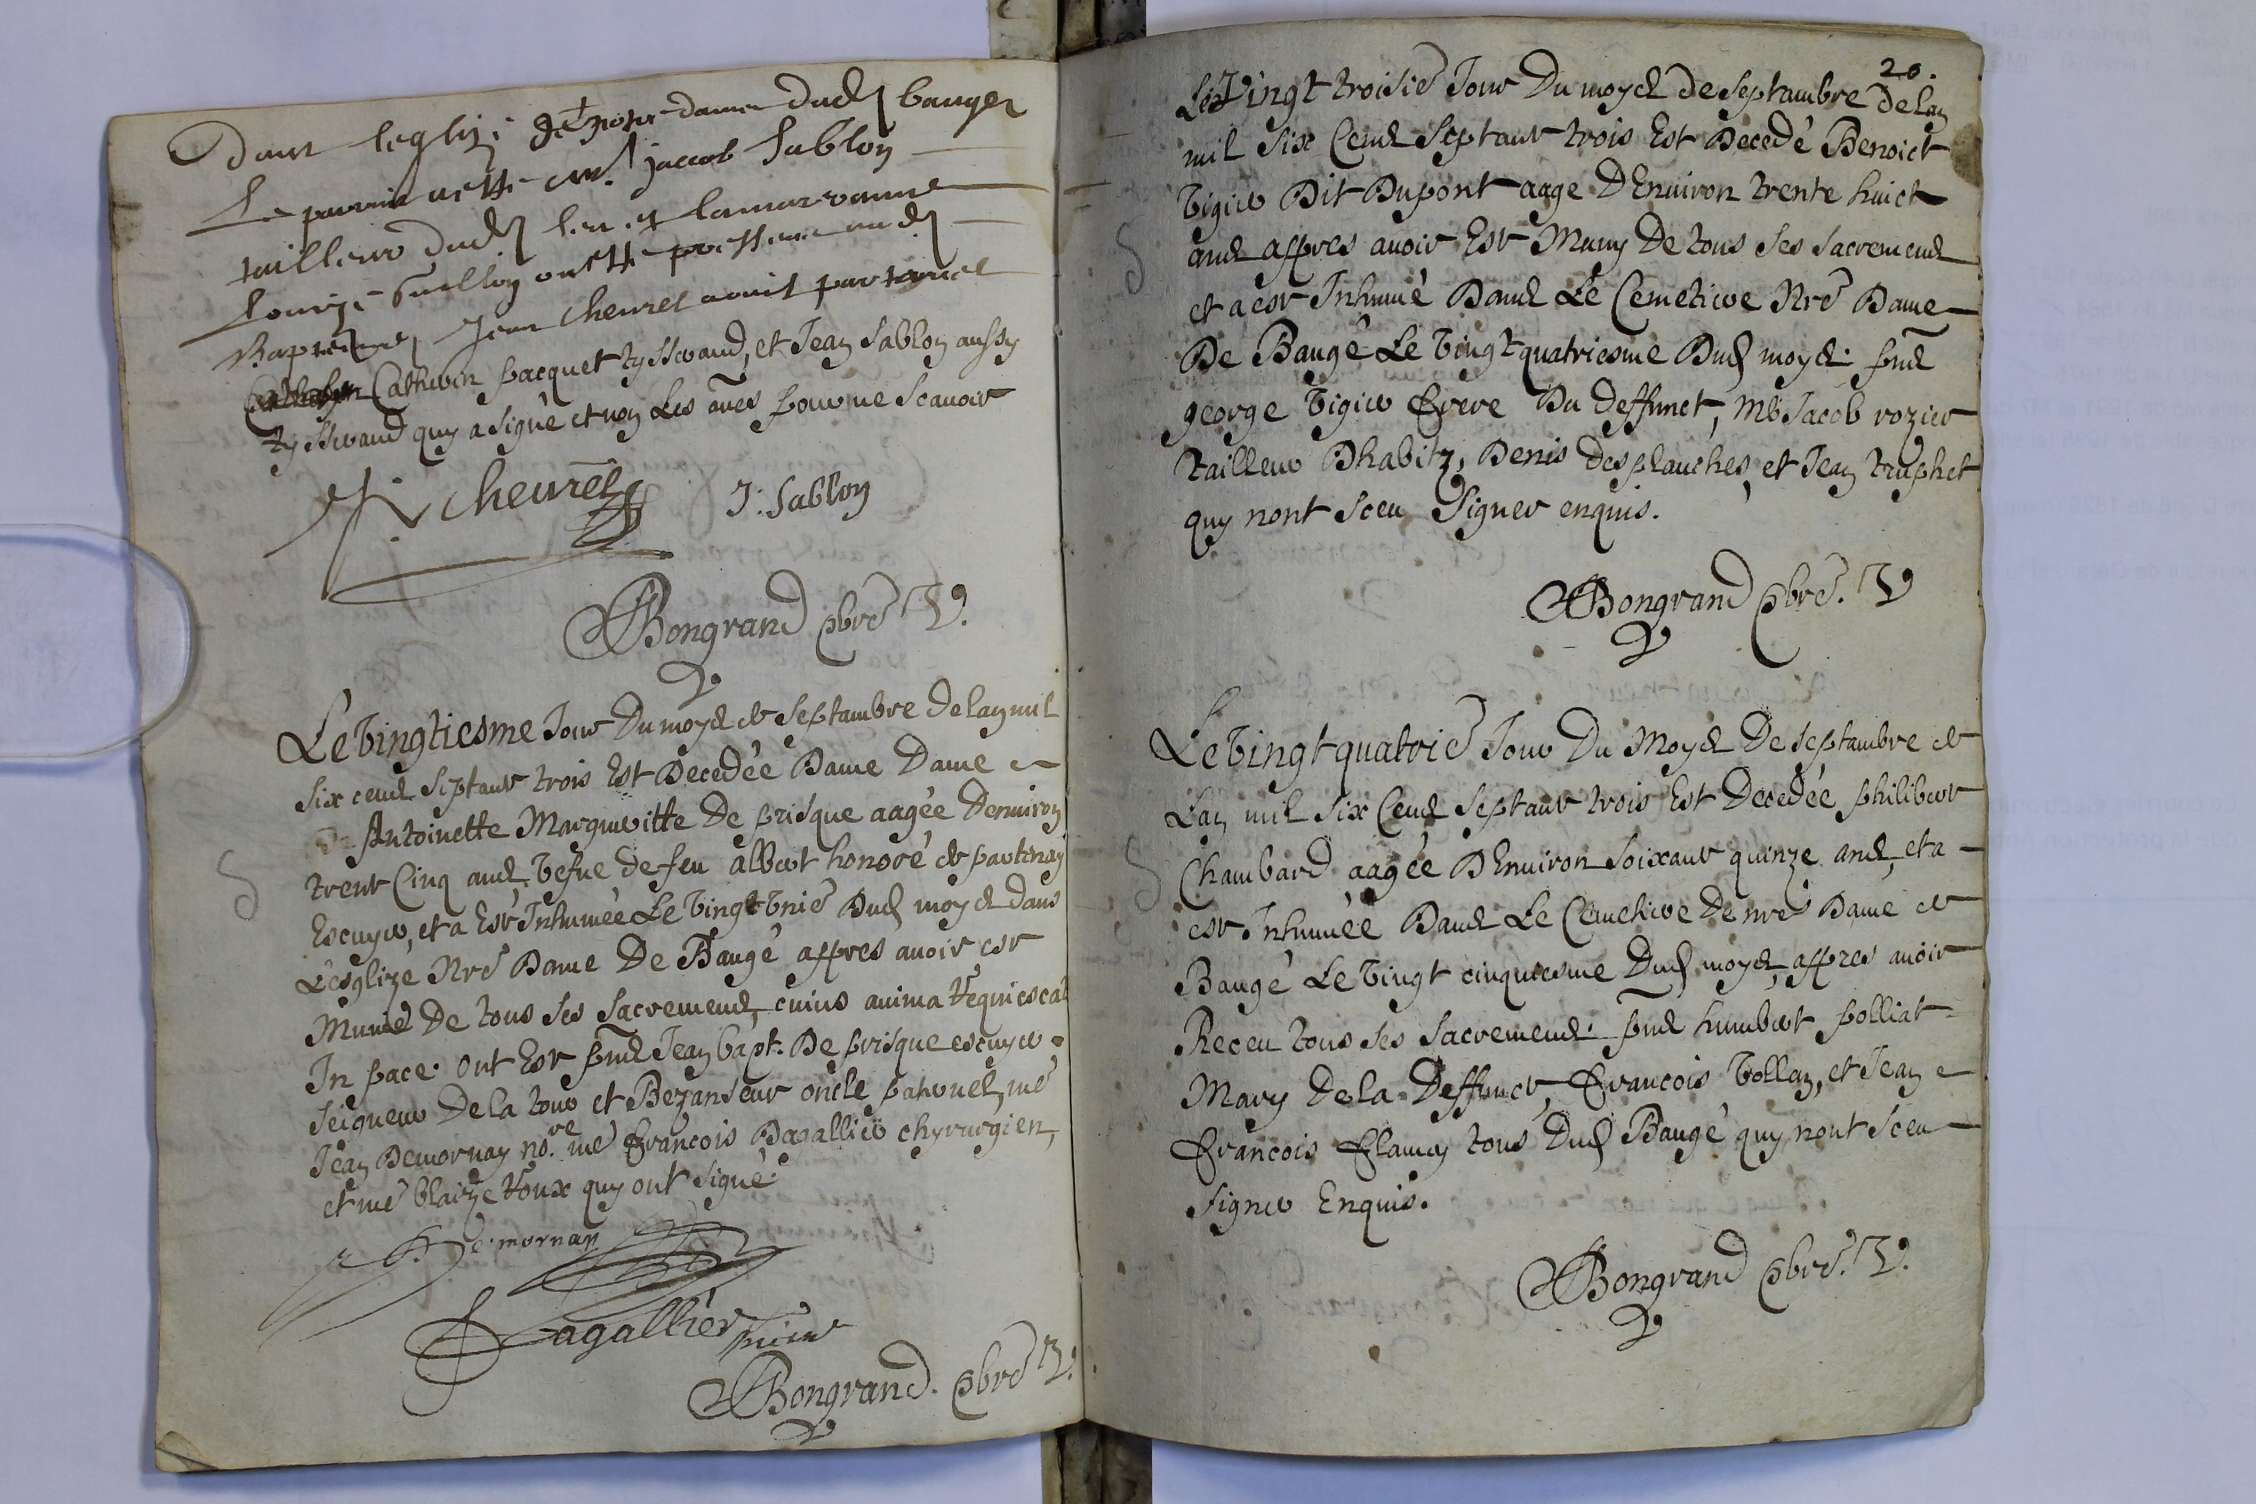 Dans leglize de nostre dame dud bauger
Le parrin a esté Mr. jacob Sablon
tailleur dud lieu et la marranne
Louize Guillon ont esté presten aud
Baptesmes Jean Cheurel aussi partenied
Catherin pacquet tysserand, et Jean Sablon aussy
tysserand quy a signé et non Les aũes pour ne scauoir
Cheurel J. Sablon
Bongrand pbrẽ V.
Le Vingtiesme Jour Du moys de Septambre de lan mil
six cens septante trois Est Decedée Dame Dame
Antoinette Margueritte De prisque aagée denuiron
trente Cinq ans, Vefue de feu albert honoré de partenay
Escuyer, et a Esté Inhumée Le Vingt Vniẽ Dud moys dans
L'esglize Nrẽ Dame De Baugé appres auoir esté
Munie De tous ses sacremens, cuius anima Requiescat
In pace. ont Esté pñs Jean bapt. De prisque escuyer
seigneur De la tour et Bezanseur oncle paternel, mẽ
Jean Demornay no.re mẽ François Dagallier chyrurgien,
et mẽ blaize Roux quy ont signé.
Demornay
Dagallier
Bongrand. pbrẽ V.
20.
Le Vingt troisiẽ Jour Du moys de Septambre de lan
mil six Cens septante trois Est Decedé Benoict
Vigier Dit Dupont aage D'Enuiron trente huict
ans appres auoir Esté Muny De tous ses sacremens
et a esté Inhumé Dans Le Cemetiere Nrẽ Dame
De Baugé Le Vingt quatriesme Dud moys. pñs
george Vigier frere Du Deffunct, Mẽ Jacob rozier
tailleur D'habitz, Denis desplanches, et Jean truphet
quy nont sceu Signer enquis.
Bongrand pbrẽ. V.
Le Vingt quatriẽ Jour Du Moys De Septambre de
Lan mil six Cens septante trois Est Decedée philiberte
Chambard aagée D'Enuiron soixante quinze ans, et a
esté Inhumée Dans Le Cemetiere De nrẽ Dame de
Baugé Le Vingt cinquiesme Dud moys, appres auoir
Receu tous ses sacremens. pñs humbert polliat
Mary De la Deffuncte, François Vollan, et Jean
François flamy tous Dud Baugé quy nont sceu
signer Enquis.
Bongrand pbrẽ. V.